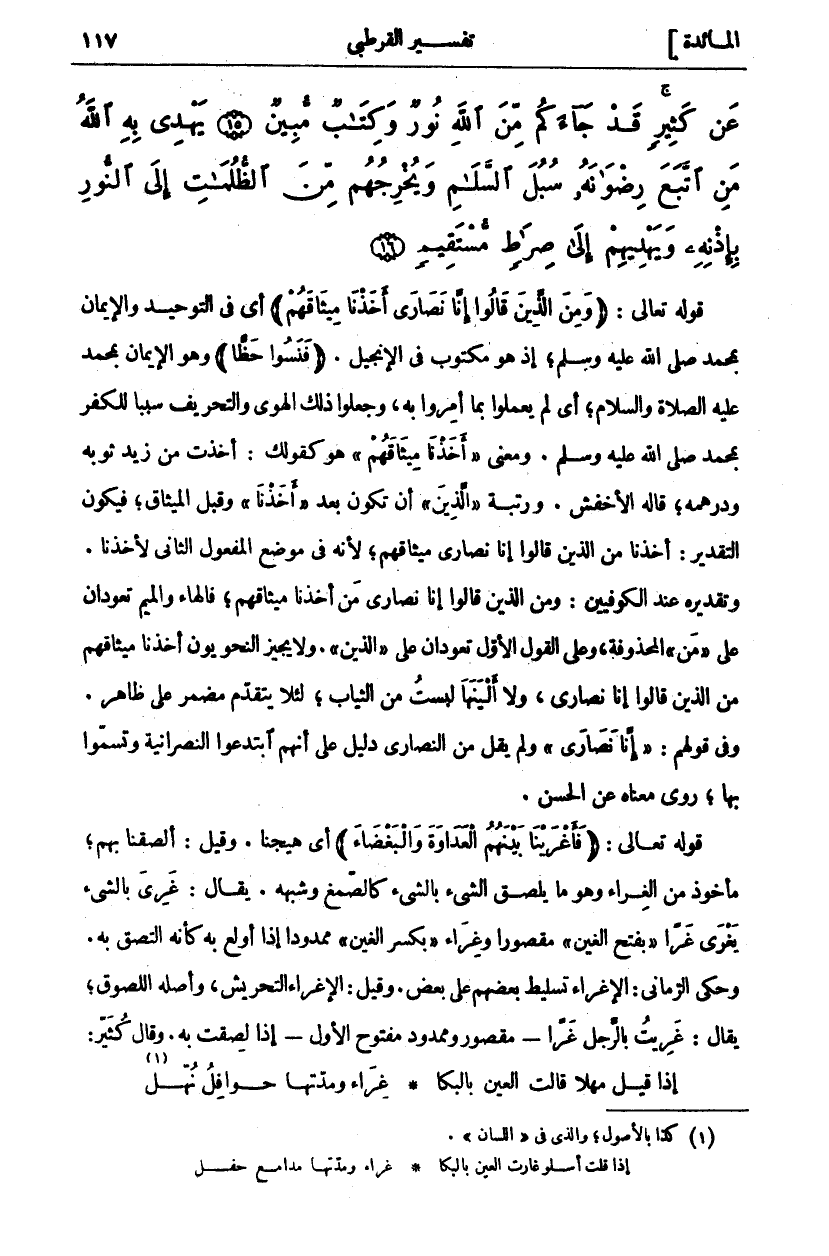 المائدة ] تفسير القرطبى ١١٧
عَن كَثِيرٍ ۚ قَدْ جَآءَكُم مِّنَ ٱللَّهِ نُورٌ وَكِتَٰبٌ مُّبِينٌ ⟨١٥⟩ يَهْدِى بِهِ ٱللَّهُ
مَنِ ٱتَّبَعَ رِضْوَٰنَهُۥ سُبُلَ ٱلسَّلَٰمِ وَيُخْرِجُهُم مِّنَ ٱلظُّلُمَٰتِ إِلَى ٱلنُّورِ
بِإِذْنِهِۦ وَيَهْدِيهِمْ إِلَىٰ صِرَٰطٍ مُّسْتَقِيمٍ ⟨١٦⟩
قوله تعالى : ﴿ وَمِنَ الَّذِينَ قَالُوا إِنَّا نَصَارَى أَخَذْنَا مِيثَاقَهُمْ ﴾ أى فى التوحيد والإيمان
بمحمد صلى الله عليه وسلم؛ إذ هو مكتوب فى الإنجيل . ﴿ فَنَسُوا حَظًّا ﴾ وهو الإيمان بمحمد
عليه الصلاة والسلام؛ أى لم يعملوا بما أمِروا به، وجعلوا ذلك الهوى والتحريف سببا للكفر
بمحمد صلى الله عليه وسلم . ومعنى « أَخَذْنَا مِيثَاقَهُمْ » هو كقولك : أخذت من زيد ثوبه
ودرهمه؛ قاله الأخفش . ورتبة «الَّذِينَ» أن تكون بعد «أَخَذْنَا » وقبل الميثاق؛ فيكون
التقدير : أخذنا من الذين قالوا إنا نصارى ميثاقهم؛ لأنه فى موضع المفعول الثانى لأخذنا .
وتقديره عند الكوفيين : ومن الذين قالوا إنا نصارى مَن أخذنا ميثاقهم؛ فالهاء والميم تعودان
على «مَن» المحذوفة، وعلى القول الأوّل تعودان على «الذين» . ولا يجيز النحويون أخذنا ميثاقهم
من الذين قالوا إنا نصارى ، ولا أَلْيَنَهَا لبستُ من الثياب ؛ لئلا يتقدّم مضمر على ظاهر .
وفى قولهم : « إِنَّا نَصَارَى » ولم يقل من النصارى دليل على أنهم ٱبتدعوا النصرانية وتسمّوا
بها ؛ روى معناه عن الحسن .
قوله تعالى : ﴿ فَأَغْرَيْنَا بَيْنَهُمُ الْعَدَاوَةَ وَالْبَغْضَاءَ ﴾ أى هيجنا . وقيل : ألصقنا بهم؛
مأخوذ من الغِراء وهو ما يلصق الشىء بالشىء كالصّمغ وشبهه . يقال : غَرِىَ بالشىء
يَغْرَى غَرًا «بفتح الغين» مقصورا وغِرَاء «بكسر الغين» ممدودا إذا أولع به كأنه التصق به .
وحكى الرّمانى : الإغراء تسليط بعضهم على بعض . وقيل : الإغراء التحريش، وأصله اللصوق؛
يقال : غَرِيتُ بالرَّجل غَرًا — مقصور وممدود مفتوح الأول — إذا لَصِقت به . وقال كُثَيّر :
إذا قيل مهلا قالت العين بالبكا * غِرَاء ومدّتها حوافِلُ نُهَّل (١)
(١) كذا بالأصول؛ والذى فى « اللسان » .
إذا قلت أسلو غارت العين بالبكا * غراء ومدّتها مدامع حفل